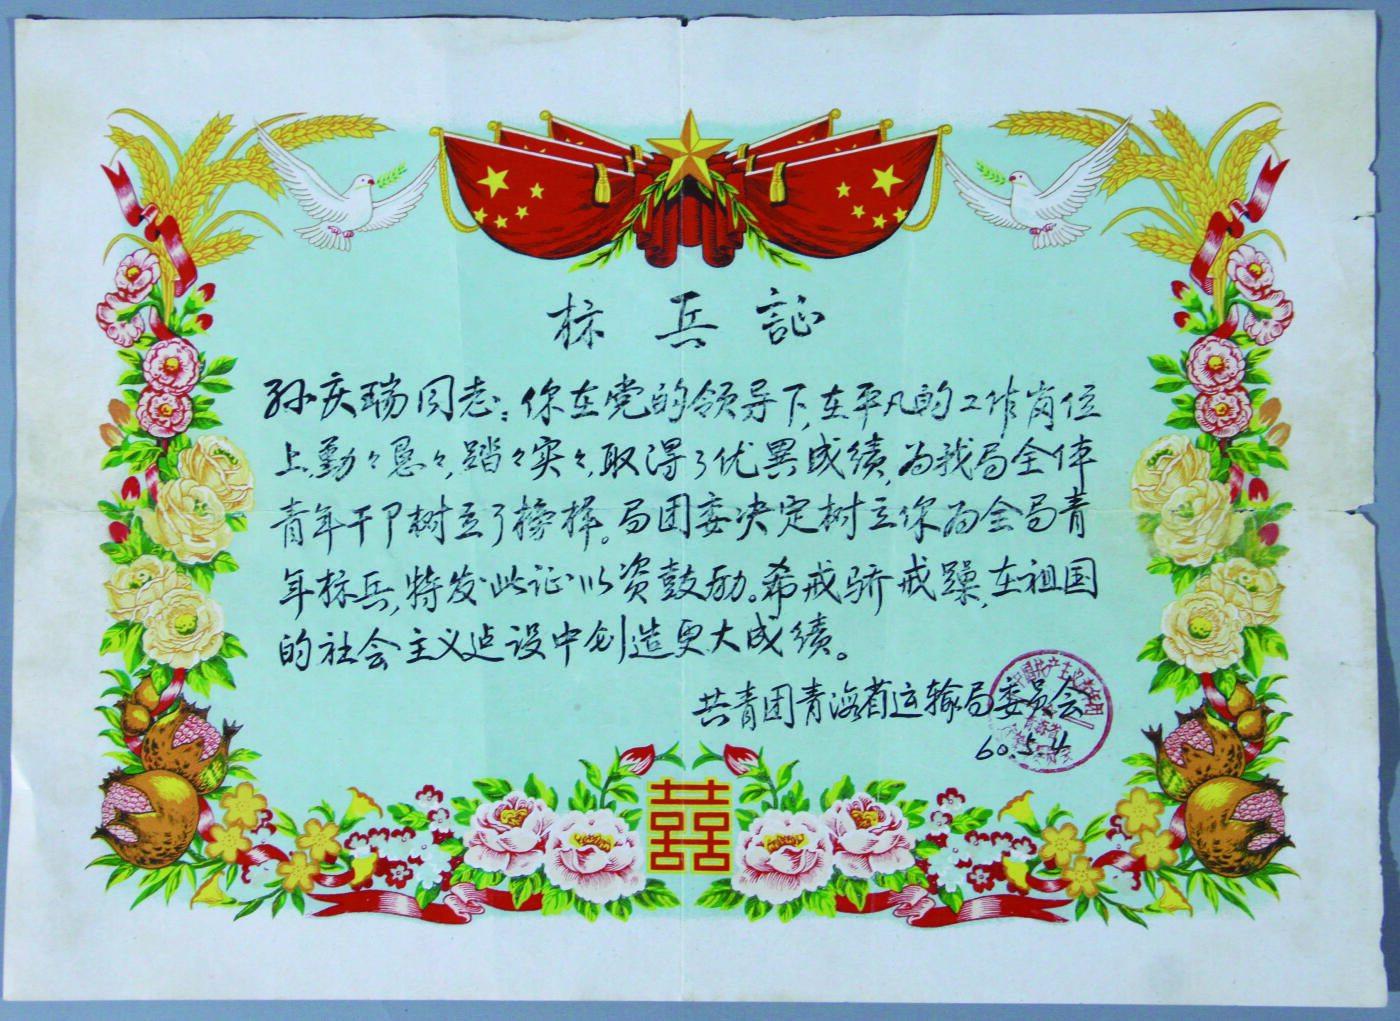 标兵証
孙庆瑞同志：你在党的领导下,在平凡的工作岗位
上勤々恳々,踏々实々,取得了优異成绩,为我局全体
青年干卩树立了榜样。局团委决定树立你为全局青
年标兵,特发此证以资鼓励。希戒骄戒躁,在祖国
的社会主义建设中创造更大成绩。
共青团青海省运输局委员会
60.5.4
囍